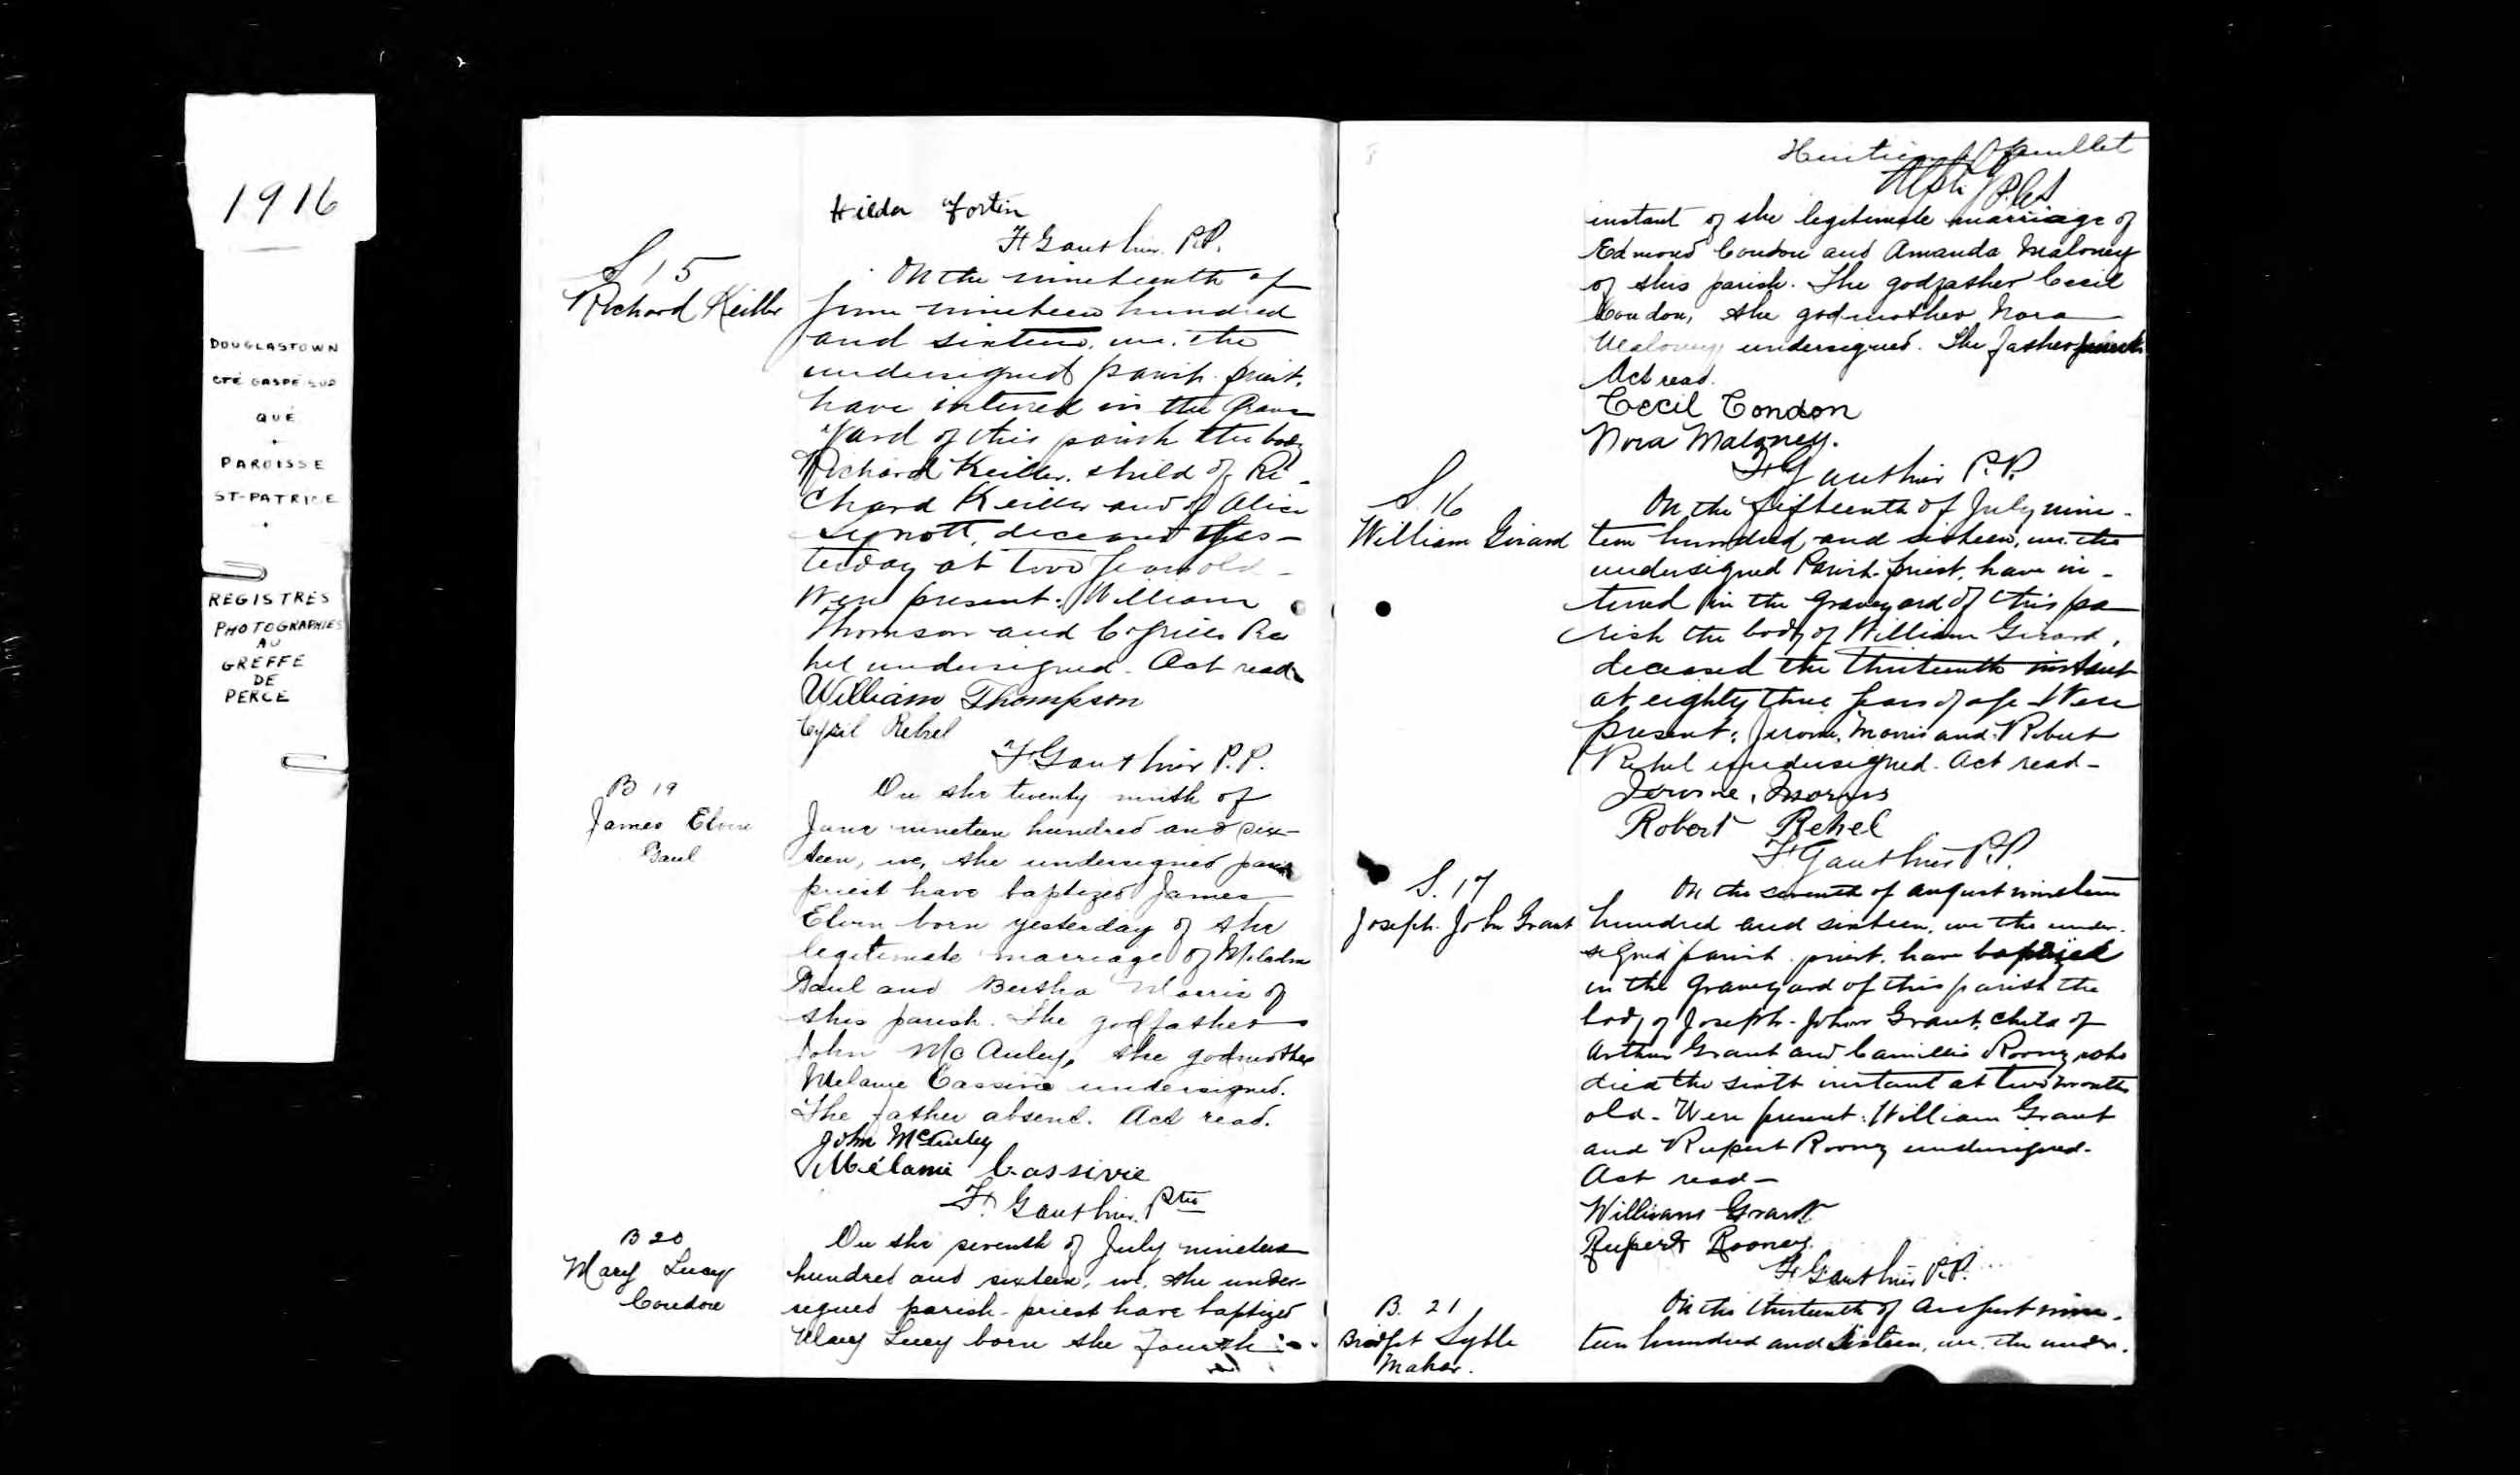 1916
DOUGLASTOWN
CTÉ GASPÉ SUD
QUÉ
PAROISSE
ST-PATRICE
REGISTRES
PHOTOGRAPHIES
AU
GREFFE
DE
PERCE
Hilda Fortin
F Gauthier P.P.
S 15
Richard Keiller
On the nineteenth of
June nineteen hundred
and sixteen, we, the
undersigned parish priest,
have interred in the Grave
Yard of this parish the body
Richard Keiller, child of Ri-
chard Keiller and of Alice
deceased yes-
terday at two years old -
Were present: William
Thomson and Cyrille Re
hel undersigned. Act read
William Thompson
Cyril Rehel
F Gauthier P.P.
B 19
James Elvin
Paul
On the twenty ninth of
June nineteen hundred and six-
teen, we, the undersigned parish
priest have baptized James
Elvin born yesterday of the
legitimate marriage of
and Bertha Morris of
this parish. The godfather
John McAuley, the godmother
Melanie Cassivie undersigned.
The father absent. Act read.
John McAuley
Mélanie Cassivie
F. Gauthier Ptre
B 20
Mary Lucy
Condon
On the seventh of July nineteen
hundred and sixteen, we, the under-
signed parish-priest have baptized
Mary Lucy born the fourth
feuillet
instant of the legitimate marriage of
Edmond Condon and Amanda Maloney
of this parish. The godfather Cecil
Condon, the godmother Nora
Maloney undersigned. The father
Act read.
Cecil Condon
Nora Maloney.
F Gauthier P.P.
S. 16
William Girard
On the fifteenth of July nine-
teen hundred and sixteen, we, the
undersigned Parish-priest, have in-
terred in the graveyard of this pa
rish the body of William Girard,
deceased the thirteenth instant
at eighty three years of age. Were
present: Jerome Morris and Robert
Rehel undersigned. Act read -
Jerome Morris
Robert Rehel
F Gauthier P.P.
S. 17
Joseph John Grant
On the seventh of august nineteen
hundred and sixteen, we the under-
signed parish priest, have
in the Graveyard of this parish the
body of Joseph-John Grant, child of
Arthur Grant and Camillia Roony who
died the sixth instant at two months
old - Were present: William Grant
and Rupert Roony undersigned.
Act read -
William Grant
Rupert Rooney.
F Gauthier P.P.
B. 21
Bridget Syble
Maher.
On the thirteenth of August nine-
teen hundred and sixteen, we, the under-